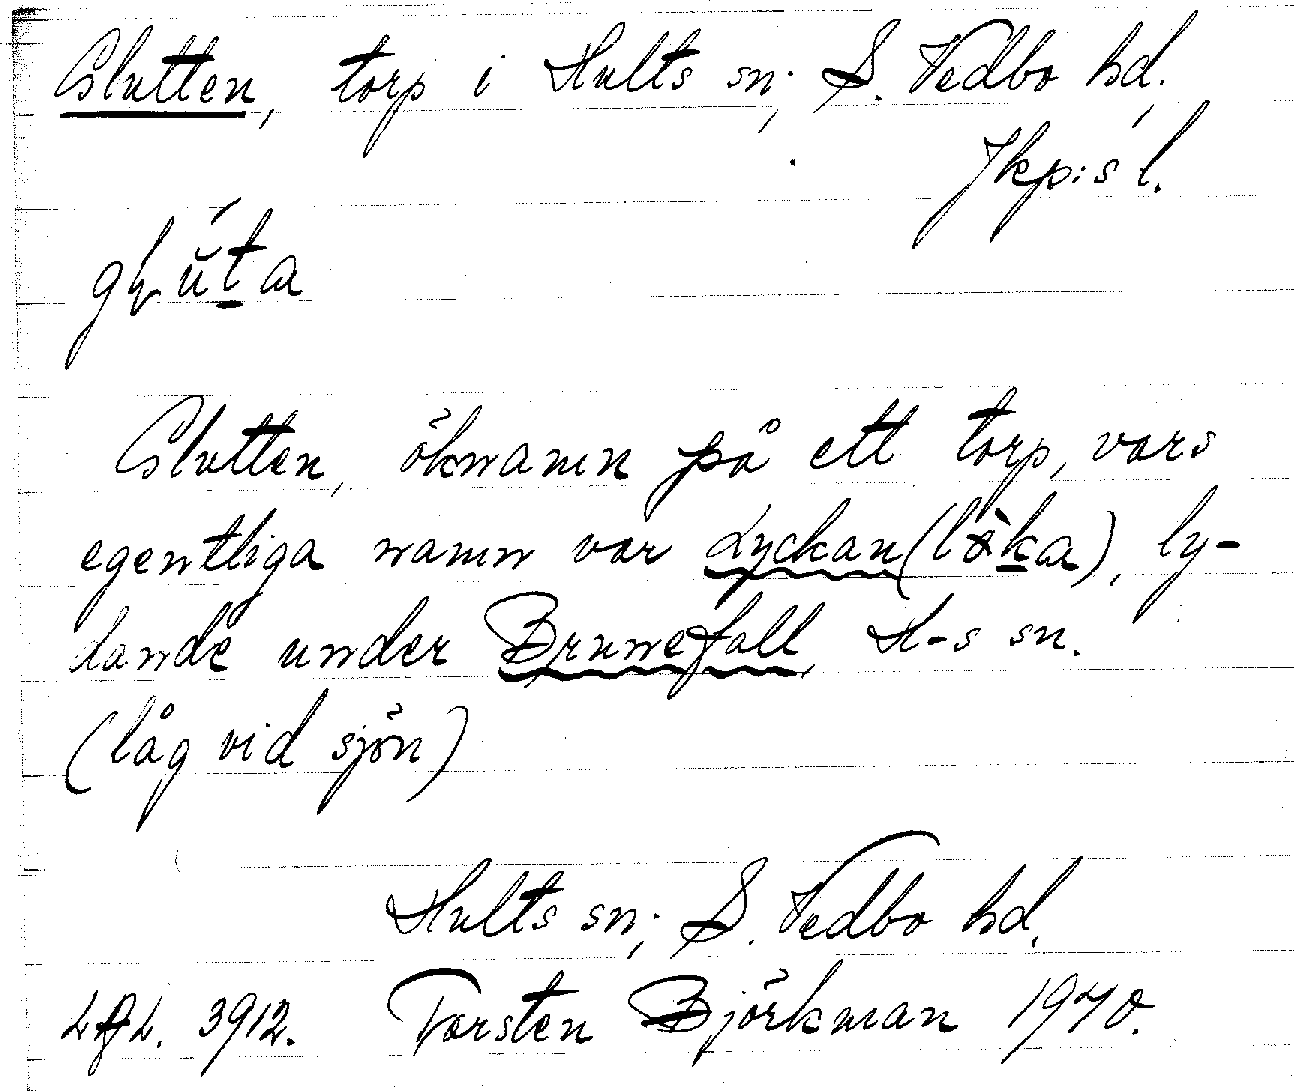 Glutten, torp i Hults sn; S. Vedbo hd,
Jkp:s l.
Glutten, öknamn på ett torp, vars
egentliga namn var Lyckan (), ly-
dande under Brunnefall, H-s sn.
(låg vid sjön)
Hults sn; S. Vedbo hd,
3912. Torsten Björkman 1940.